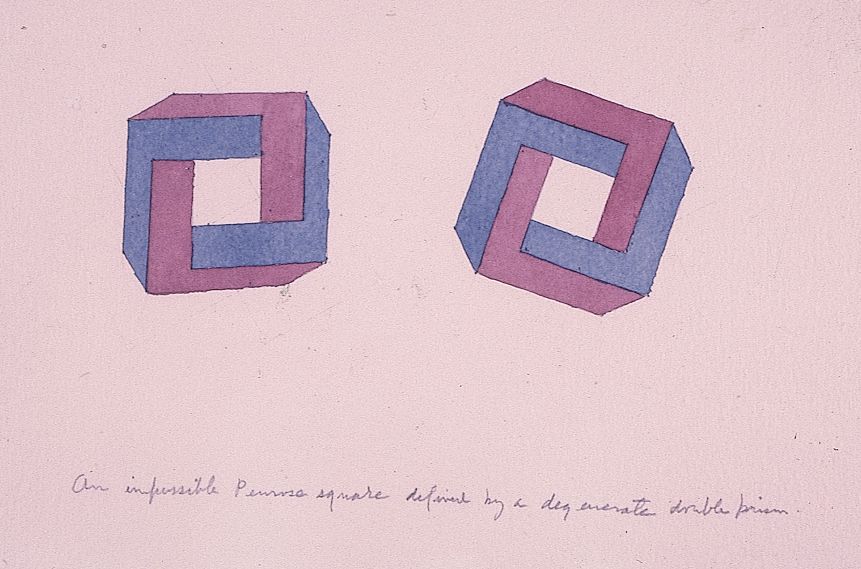 An impossible Penrose square defined by a degenerate double prism.